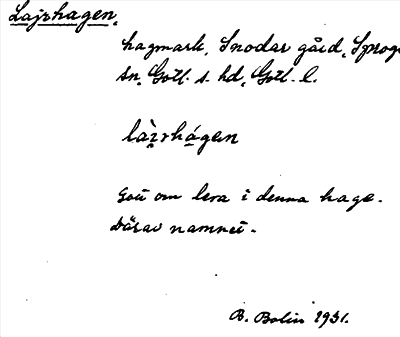 Lajrhagen.
hagmark, Snodar gård, Sproge
sn, Gotl. s. hd, Gotl. l.
la̱i̱rhá̱gen
Gott om lera i denna hage.
Därav namnet.
B. Bolin 1931.